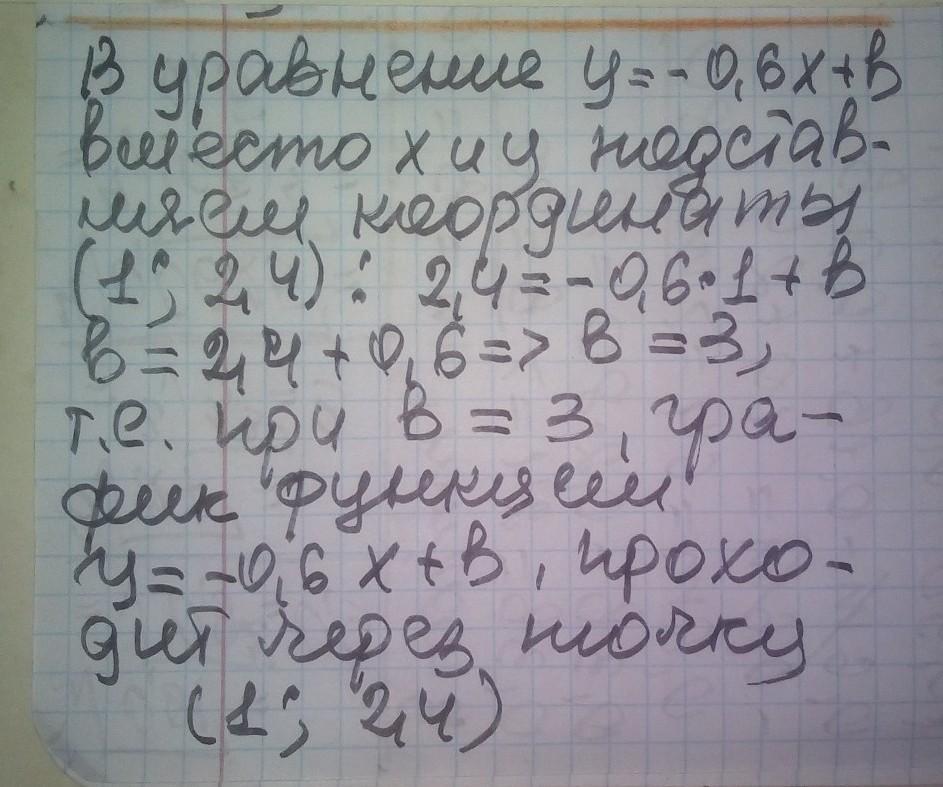 В уравнение y=-0,6x+в
вместо x и y подстав-
ляем координаты
(1; 2,4): 2,4=-0,6·1+в
в=2,4+0,6=> в=3,
т.е. при в=3, гра-
фик функцией
y=-0,6x+в, прохо-
дит через точку
(1; 2,4)